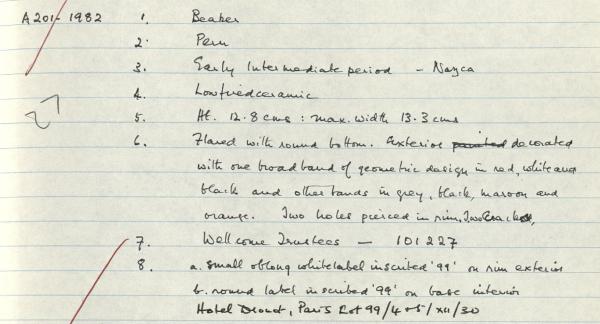 A201-1982 1. Beaker
2. Peru
3. Early Intermediate period - Nazca
4. Low fired ceramic
27
5. Ht. 12.8 cms : max. width 13.3 cms
6. Flared with round bottom. Exterior painted decorated
with one broad band of geometric design in red, white and
black and other bands in grey, black, maroon and
orange. Two holes pierced in rim. Two cracks.
7. Wellcome Trustees - 101227
8. a. small oblong white label inscribed '99' on rim exterior
b. round label inscribed '99' on base interior
Hotel Drouot, Paris Lot 99/4+5/XII/30